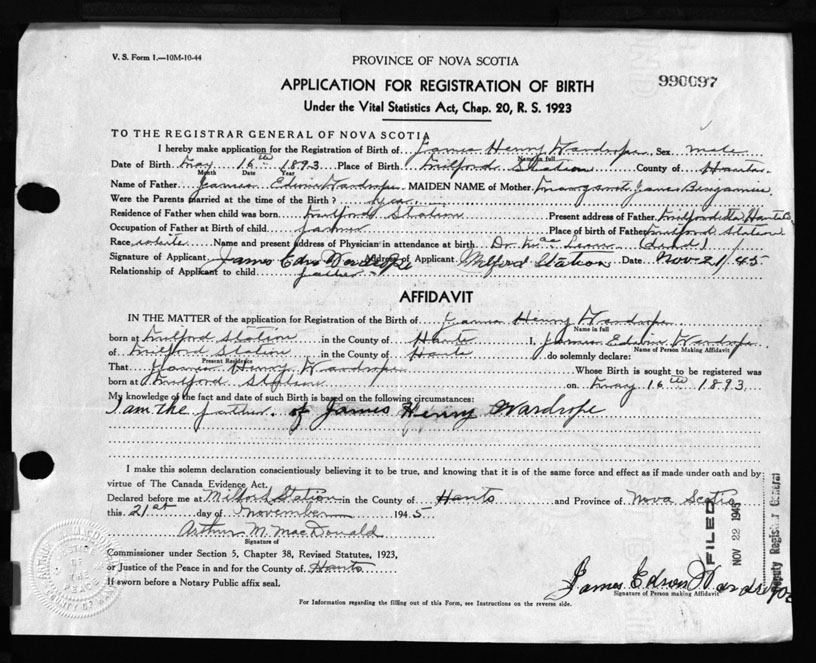 V. S. Form 1.—10M-10-44
PROVINCE OF NOVA SCOTIA
990097
APPLICATION FOR REGISTRATION OF BIRTH
Under the Vital Statistics Act, Chap. 20, R. S. 1923
TO THE REGISTRAR GENERAL OF NOVA SCOTIA
I hereby make application for the Registration of Birth of James Henry Wardrope, Sex male
Name in full
Date of Birth May 16th 1893 Place of Birth Milford Station County of Hants
Month Date Year
Name of Father James Edwin Wardrope MAIDEN NAME of Mother Margaret Jane Benjamin
Were the Parents married at the time of the Birth? Yes
Residence of Father when child was born Milford Station Present address of Father Milford Sta. Hants Co
Occupation of Father at Birth of child farmer Place of birth of Father Milford Station
Race white Name and present address of Physician in attendance at birth Dr. (dead)
Signature of Applicant James Edwin Wardrope Address of Applicant Milford Station Date Nov-21/45
Relationship of Applicant to child father
AFFIDAVIT
IN THE MATTER of the application for Registration of the Birth of James Henry Wardrope
Name in full
born at Milford Station in the County of Hants I, James Edwin Wardrope
Name of Person Making Affidavit
of Milford Station in the County of Hants do solemnly declare:
Present Residence
That James Henry Wardrope Whose Birth is sought to be registered was
born at Milford Station on May 16th 1893
My knowledge of the fact and date of such Birth is based on the following circumstances:
I am the father of James Henry Wardrope
I make this solemn declaration conscientiously believing it to be true, and knowing that it is of the same force and effect as if made under oath and by
virtue of The Canada Evidence Act.
Declared before me at Milford Station in the County of Hants and Province of Nova Scotia
this 21st day of November 1945
Arthur M. MacDonald
Signature of
Commissioner under Section 5, Chapter 38, Revised Statutes, 1923,
or Justice of the Peace in and for the County of Hants
If sworn before a Notary Public affix seal.
James Edwin Wardrope
Signature of Person making Affidavit
For Information regarding the filling out of this Form, see Instructions on the reverse side.
FILED
NOV 22 1945
Deputy Registrar General